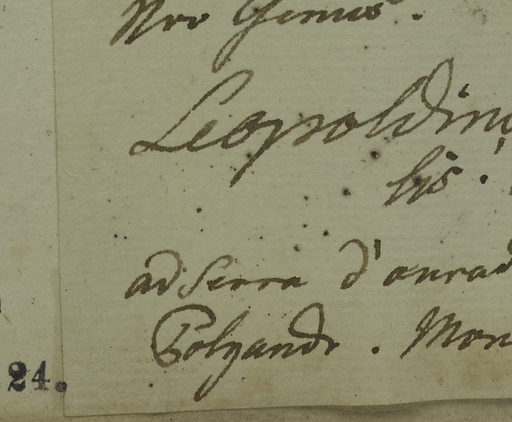 Nro Genus.
Leopoldin
lis.
ad Serra d'onrad
Polyandr. Mon
24.